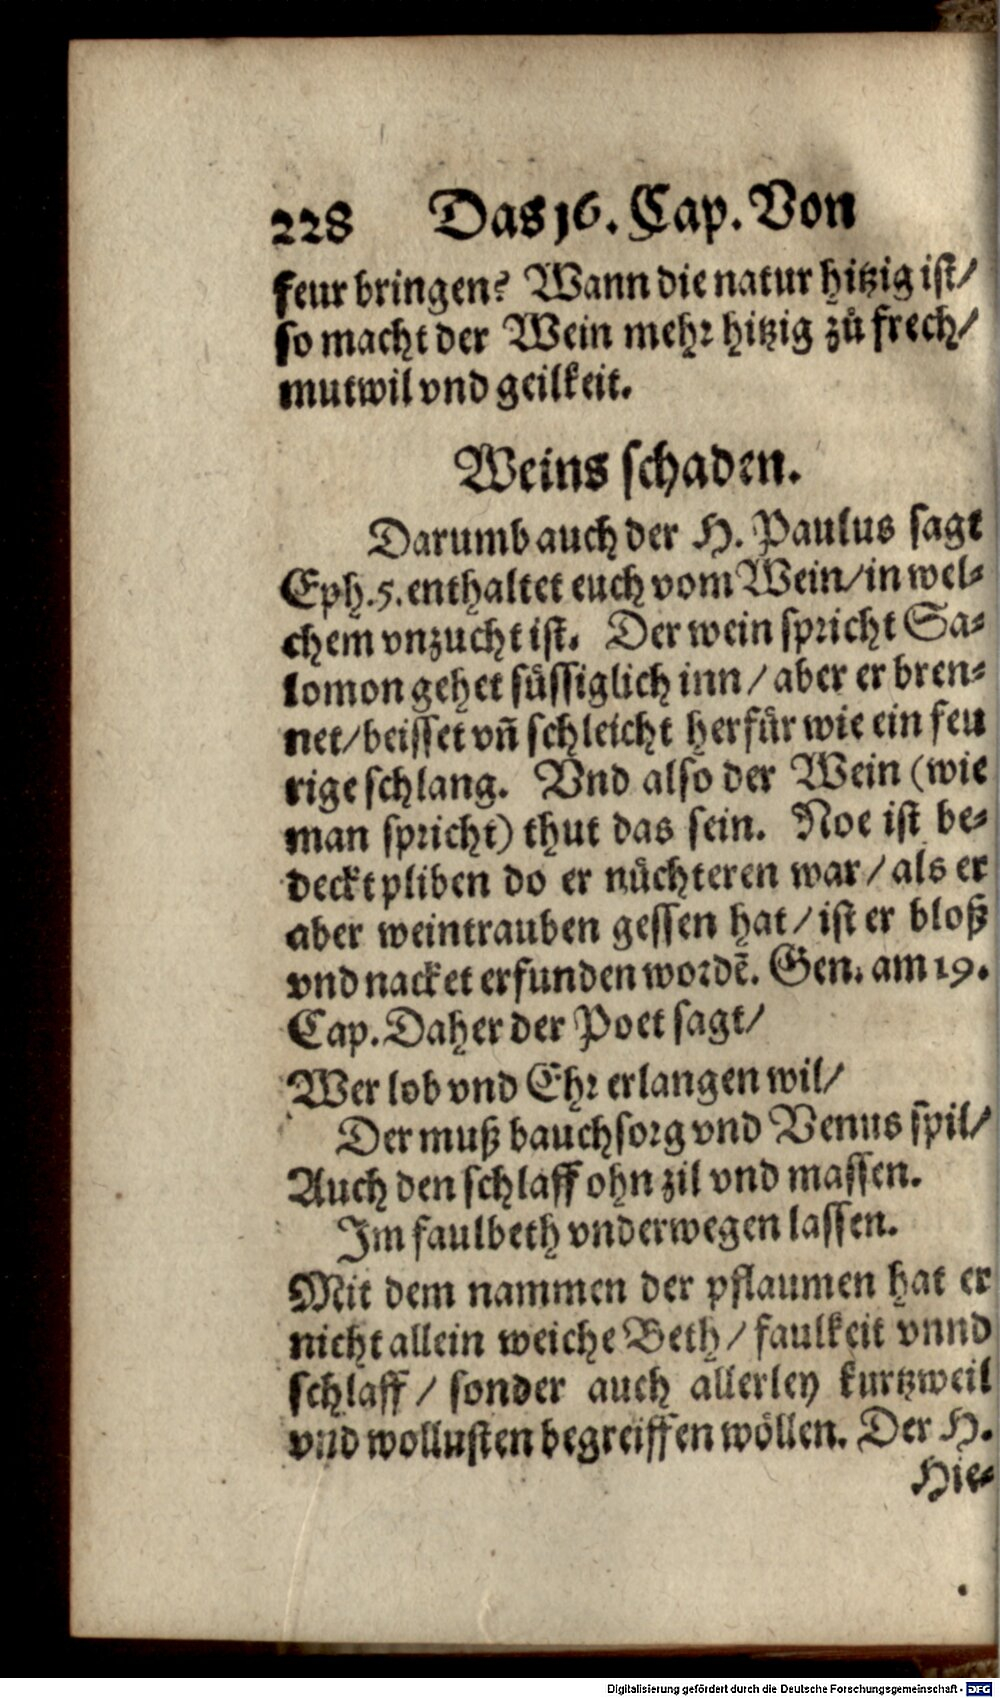 228 Das 16. Cap. Von
feur bringen? Wann die natur hitzig ist/
so macht der Wein mehr hitzig zů frech/
mutwil vnd geilkeit.
Weins schaden.
Darumb auch der H. Paulus sagt
Eph. 5. enthaltet euch vom Wein/ in wel-
chem vnzucht ist. Der wein spricht Sa-
lomon gehet süssiglich inn/ aber er bren-
net/ beisset vñ schleicht herfür wie ein feu
rige schlang. Vnd also der Wein (wie
man spricht) thut das sein. Noe ist be-
deckt pliben do er nüchteren war/ als er
aber weintrauben gessen hat/ ist er bloß
vnd nacket erfunden wordē. Gen. am 19.
Cap. Daher der Poet sagt/
Wer lob vnd Ehr erlangen wil/
Der muß bauchsorg vnd Venus spil/
Auch den schlaff ohn zil vnd massen.
Im faulbeth vnderwegen lassen.
Mit dem nammen der pflaumen hat er
nicht allein weiche Beth/ faulkeit vnnd
schlaff/ sonder auch allerley kurtzweil
vnd wollusten begreiffen wöllen. Der H.
Hie-
Digitalisierung gefördert durch die Deutsche Forschungsgemeinschaft - DFG